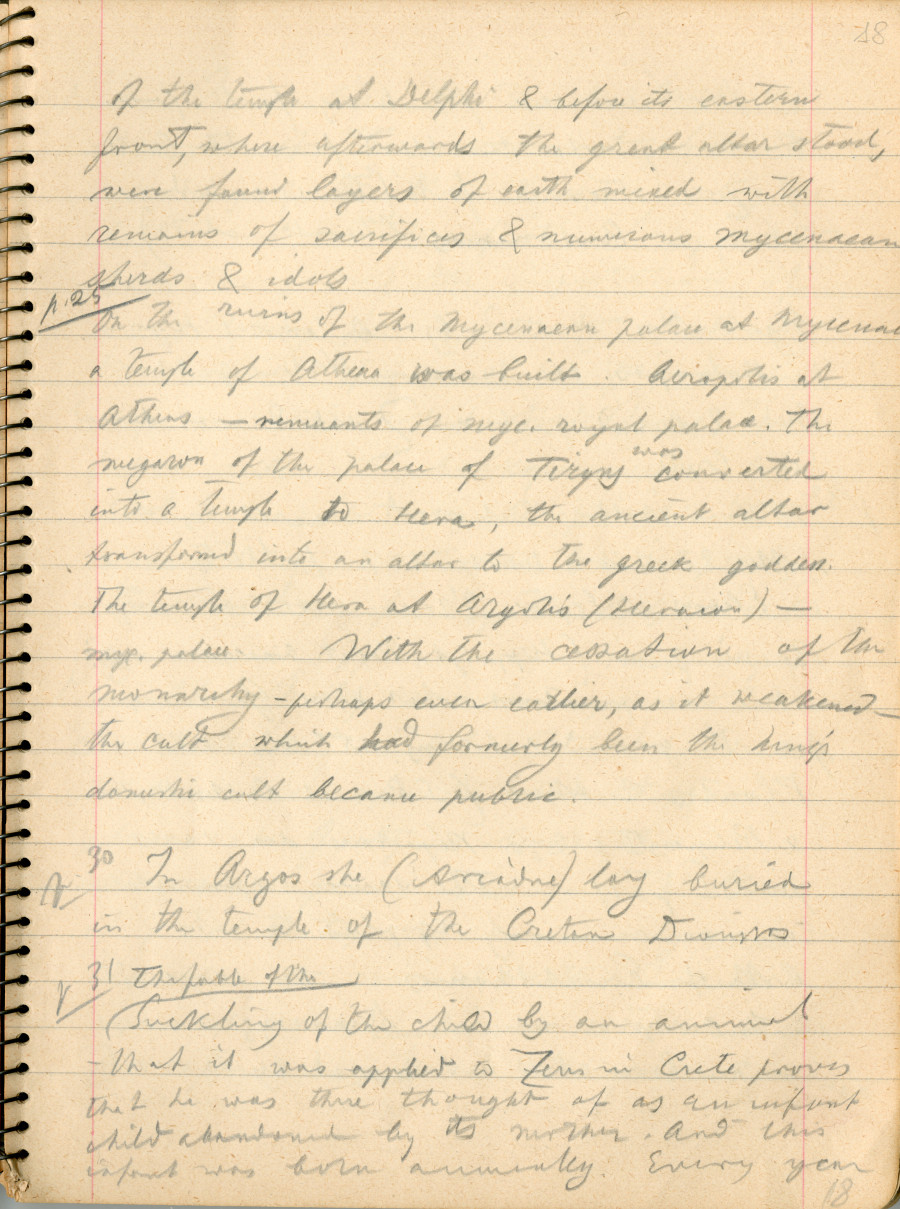 18
of the temple at Delphi & before its eastern
front, where afterwards the great altar stood,
were found layers of earth mixed with
remains of sacrifices & numerous mycenaean
sherds & idols
p. 25
On the ruins of the Mycenaean palace at Mycenae
a temple of Athena was built. Acropolis at
Athens — remnants of myc. royal palace. The
megaron of the palace of Tiryns was converted
into a temple to Hera, the ancient altar
transformed into an altar to the greek goddess.
The temple of Hera at Argolis (Heraion) —
myc. palace. With the cessation of the
monarchy - perhaps even earlier, as it weakened —
the cult which had formerly been the king's
domestic cult became public.
p 30 In Argos she (Ariadne) lay buried
in the temple of the Cretan Dionysos
p 31 The fable of the
(Suckling of the child by an animal
- that it was applied to Zeus in Crete proves
that he was there thought of as an infant
child abandoned by its mother. And this
infant was born annually. Every year
18